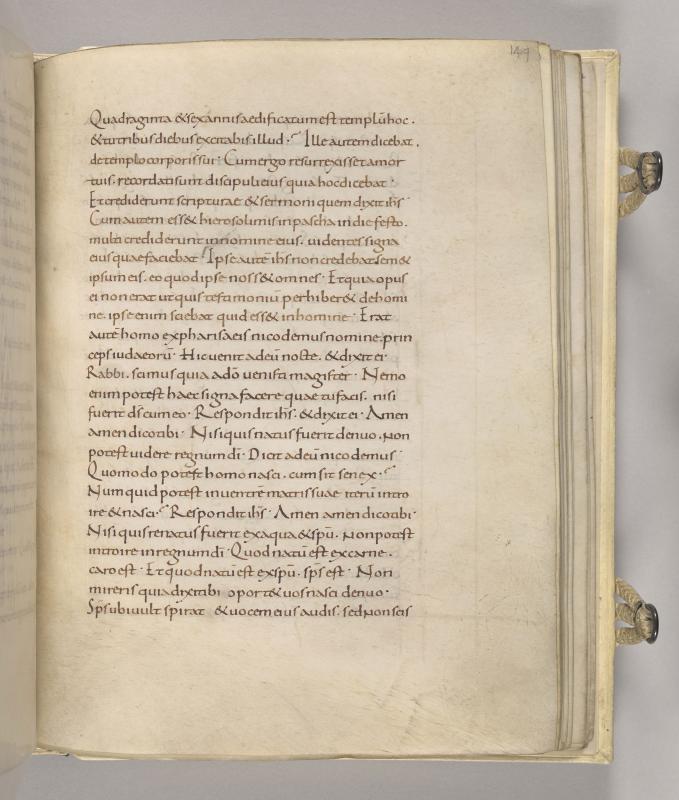 149
Quadraginta & sex annis aedificatum est templū hoc.
& tu tribus diebus excitabis illud. Ille autem dicebat.
de templo corporis sui· Cum ergo resurrexisset a mor
tuis. recordati sunt discipuli eius quia hoc dicebat·
Et crediderunt scripturae & sermoni quem dixit ihs̄·
Cum autem ess& hierosolimis in pascha in die festo.
multi crediderunt in nomine eius. uidentes signa
eius quae faciebat· Ipse autē ihs̄ non credebat sem&
ipsum eis. eo quod ipse noss& omnes· Et quia opus
ei non erat ut quis testimoniū perhiber& de homi
ne. ipse enim sciebat quid ess& in homine· Erat
autē homo ex pharisaeis nicodemus nomine. prin
ceps iudaeorū· Hic uenit ad eū nocte. & dixit ei·
Rabbi. scimus quia a dō uenisti magister· Nemo
enim potest haec signa facere quae tu facis. nisi
fuerit ds̄ cum eo· Respondit ihs̄. & dixit ei· Amen
amen dico tibi· Nisi quis natus fuerit denuo. non
potest uidere regnum dī· Dicit ad eū nicodemus·
Quomodo potest homo nasci. cum sit senex·
Numquid potest in uentrē matris suae iterū intro
ire & nasci· Respondit ihs̄· Amen amen dico tibi·
Nisi quis renatus fuerit ex aqua & spū. non potest
introire in regnum dī· Quod natū est ex carne.
caro est· Et quod natū est ex spū. sps̄ est· Non
mireris quia dixi tibi oport& uos nasci denuo·
Sps̄ ubi uult spirat & uocem eius audis. sed non scis